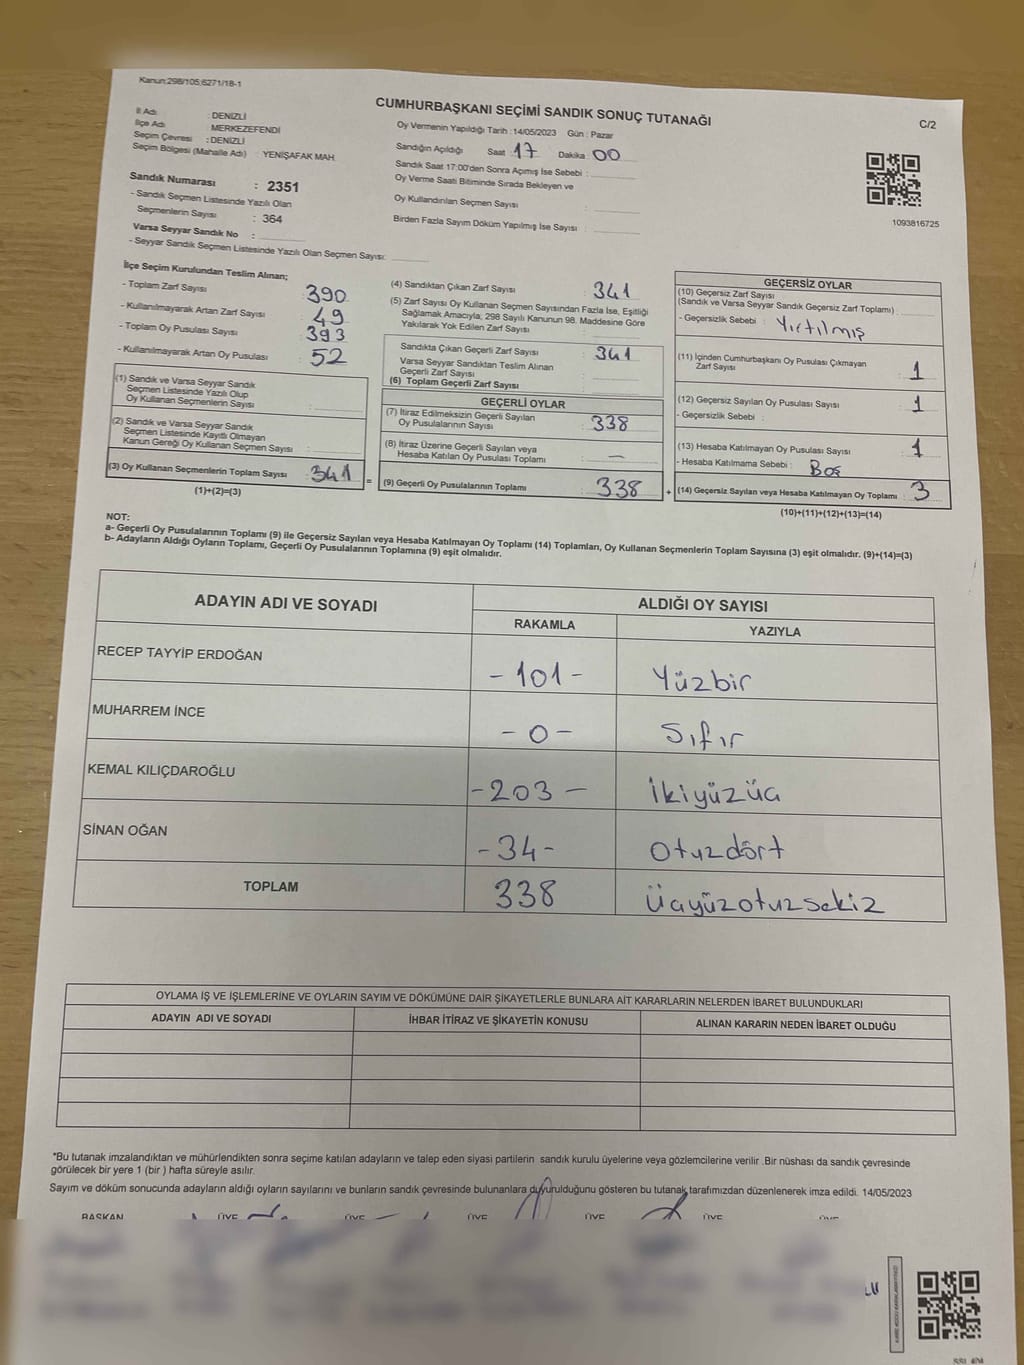 Kanun:298/105;6271/18-1
CUMHURBAŞKANI SEÇİMİ SANDIK SONUÇ TUTANAĞI
C/2
İl Adı : DENİZLİ
İlçe Adı : MERKEZEFENDİ
Seçim Çevresi : DENİZLİ
Seçim Bölgesi (Mahalle Adı) : YENİŞAFAK MAH.
Sandık Numarası : 2351
- Sandık Seçmen Listesinde Yazılı Olan
Seçmenlerin Sayısı : 364
Varsa Seyyar Sandık No :
- Seyyar Sandık Seçmen Listesinde Yazılı Olan Seçmen Sayısı:
Oy Vermenin Yapıldığı Tarih : 14/05/2023 Gün : Pazar
Sandığın Açıldığı Saat 17 Dakika : 00
Sandık Saat 17:00'den Sonra Açımış İse Sebebi :
Oy Verme Saati Bitiminde Sırada Bekleyen ve
Oy Kullandırılan Seçmen Sayısı
Birden Fazla Sayım Döküm Yapılmış İse Sayısı :
1093816725
İlçe Seçim Kurulundan Teslim Alınan;
- Toplam Zarf Sayısı : 390
- Kullanılmayarak Artan Zarf Sayısı : 49
- Toplam Oy Pusulası Sayısı : 393
- Kullanılmayarak Artan Oy Pusulası : 52
(1) Sandık ve Varsa Seyyar Sandık
Seçmen Listesinde Yazılı Olup
Oy Kullanan Seçmenlerin Sayısı :
(2) Sandık ve Varsa Seyyar Sandık
Seçmen Listesinde Kayıtlı Olmayan
Kanun Gereği Oy Kullanan Seçmen Sayısı :
(3) Oy Kullanan Seçmenlerin Toplam Sayısı : 341
(1)+(2)=(3)
=
(4) Sandıktan Çıkan Zarf Sayısı : 341
(5) Zarf Sayısı Oy Kullanan Seçmen Sayısından Fazla İse, Eşitliği
Sağlamak Amacıyla, 298 Sayılı Kanunun 98. Maddesine Göre
Yakılarak Yok Edilen Zarf Sayısı :
Sandıkta Çıkan Geçerli Zarf Sayısı : 341
Varsa Seyyar Sandıktan Teslim Alınan
Geçerli Zarf Sayısı
(6) Toplam Geçerli Zarf Sayısı :
GEÇERLİ OYLAR
(7) İtiraz Edilmeksizin Geçerli Sayılan
Oy Pusulalarının Sayısı : 338
(8) İtiraz Üzerine Geçerli Sayılan veya
Hesaba Katılan Oy Pusulası Toplamı : —
(9) Geçerli Oy Pusulalarının Toplamı : 338
+
GEÇERSİZ OYLAR
(10) Geçersiz Zarf Sayısı
(Sandık ve Varsa Seyyar Sandık Geçersiz Zarf Toplamı) :
- Geçersizlik Sebebi : Yırtılmış
(11) İçinden Cumhurbaşkanı Oy Pusulası Çıkmayan
Zarf Sayısı : 1
(12) Geçersiz Sayılan Oy Pusulası Sayısı : 1
- Geçersizlik Sebebi :
(13) Hesaba Katılmayan Oy Pusulası Sayısı : 1
- Hesaba Katılmama Sebebi : Boş
(14) Geçersiz Sayılan veya Hesaba Katılmayan Oy Toplamı : 3
(10)+(11)+(12)+(13)=(14)
NOT:
a- Geçerli Oy Pusulalarının Toplamı (9) ile Geçersiz Sayılan veya Hesaba Katılmayan Oy Toplamı (14) Toplamları, Oy Kullanan Seçmenlerin Toplam Sayısına (3) eşit olmalıdır. (9)+(14)=(3)
b- Adayların Aldığı Oyların Toplamı, Geçerli Oy Pusulalarının Toplamına (9) eşit olmalıdır.
ADAYIN ADI VE SOYADI
ALDIĞI OY SAYISI
RAKAMLA YAZIYLA
RECEP TAYYİP ERDOĞAN - 101 - Yüzbir
MUHARREM İNCE - 0 - Sıfır
KEMAL KILIÇDAROĞLU - 203 - İkiyüzüç
SİNAN OĞAN - 34 - Otuzdört
TOPLAM 338 Üçyüzotuzsekiz
OYLAMA İŞ VE İŞLEMLERİNE VE OYLARIN SAYIM VE DÖKÜMÜNE DAİR ŞİKAYETLERLE BUNLARA AİT KARARLARIN NELERDEN İBARET BULUNDUKLARI
ADAYIN ADI VE SOYADI İHBAR İTİRAZ VE ŞİKAYETİN KONUSU ALINAN KARARIN NEDEN İBARET OLDUĞU
*Bu tutanak imzalandıktan ve mühürlendikten sonra seçime katılan adayların ve talep eden siyasi partilerin sandık kurulu üyelerine veya gözlemcilerine verilir .Bir nüshası da sandık çevresinde
görülecek bir yere 1 (bir ) hafta süreyle asılır.
Sayım ve döküm sonucunda adayların aldığı oyların sayılarını ve bunların sandık çevresinde bulunanlara duyurulduğunu gösteren bu tutanak tarafımızdan düzenlenerek imza edildi. 14/05/2023
BAŞKAN ÜYE ÜYE ÜYE ÜYE ÜYE